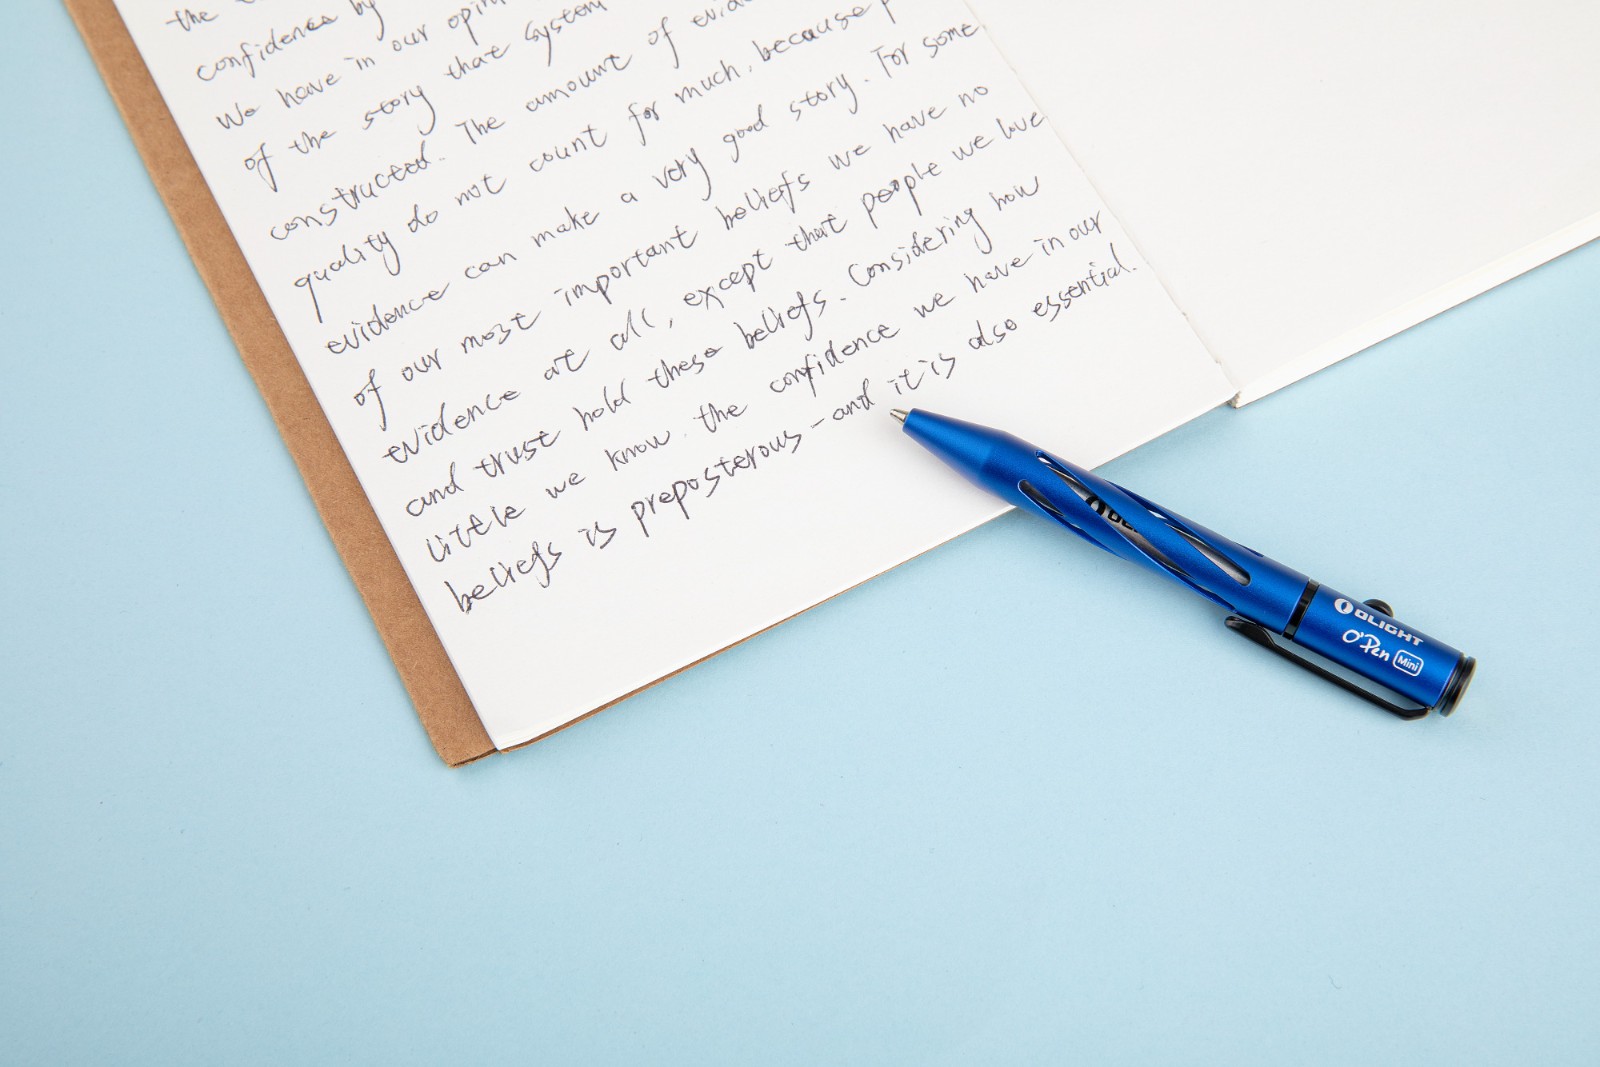 the
confidence by
We have in our opin
of the story that system
constructed. The amount of evid
quality do not count for much, because p
evidence can make a very good story. For some
of our most important beliefs we have no
evidence at all, except that people we love
and trust hold these beliefs. Considering how
little we know. the confidence we have in our
beliefs is preposterous - and it is also essential.
OLIGHT
O'Pen Mini